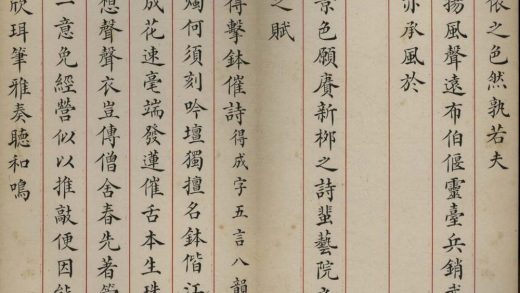 依之色然孰若夫
揚風聲遠布伯偃靈臺兵銷
亦承風於
景色願賡新柳之詩蜚藝院
之賦
得擊鉢催詩得成字五言八韻
燭何須刻吟壇獨擅名鉢偕江
成花速毫端發蓮催舌本生珠
想聲聲衣豈傳僧舍春先著
一意免經營似以推敲便因能
欣珥筆雅奏聽和鳴